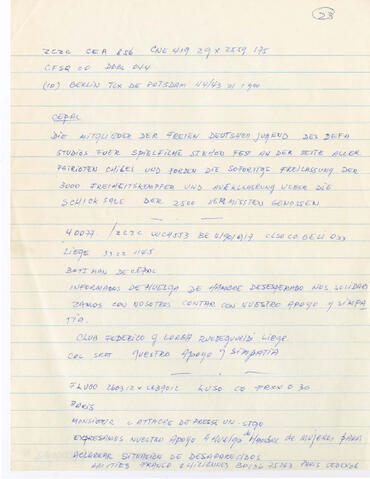 23
ZCZC CEA 856 CNE 419 29 X 2559 175
CFSQ CO DDBL 044
(10) BERLIN TLX DE POTSDAM 44/43 31 1900
CEPAL
DIE MITGLIEDER DER FREIEN DEUTSCHEN JUGEND DES DEFA
STUDIOS FUER SPIELFILME STEHEN FEST AN DER SEITE ALLER
PATRIOTEN CHILES UND FORDEN DIE SOFORTIGE FREILASSUNG DER
3000 FREIHEITSKAMPFER UND AUFKLAERUNG UBER DIE
SCHICKSALE DER 2500 VERMISSTEN GENOSSEN
40077 /ZCZC
LIEGE 33 22 1145
BATIMAN DE CEPAL
INFORMADOS DE HUELGA DE HAMBRE DESESPERADO NOS SOLIDARI
ZAMOS CON NOSOTROS CONTAR CON NUESTRO APOYO Y SIMPA
TIA.
CLUB FEDERICO G LORCA LIEGE
COL SRET NUESTRO APOYO Y SIMPATIA
PARIS
MONSIEUR L ATTACHE DE PRESSE UN STGO
EXPRESAMOS NUESTRO APOYO A HUELGA DE HAMBRE DE MUJERES PARA
ACLARAR SITUACION DE DESAPARECIDOS
AMITIES FRANCO CHILIENNES PARIS CEDEX 06